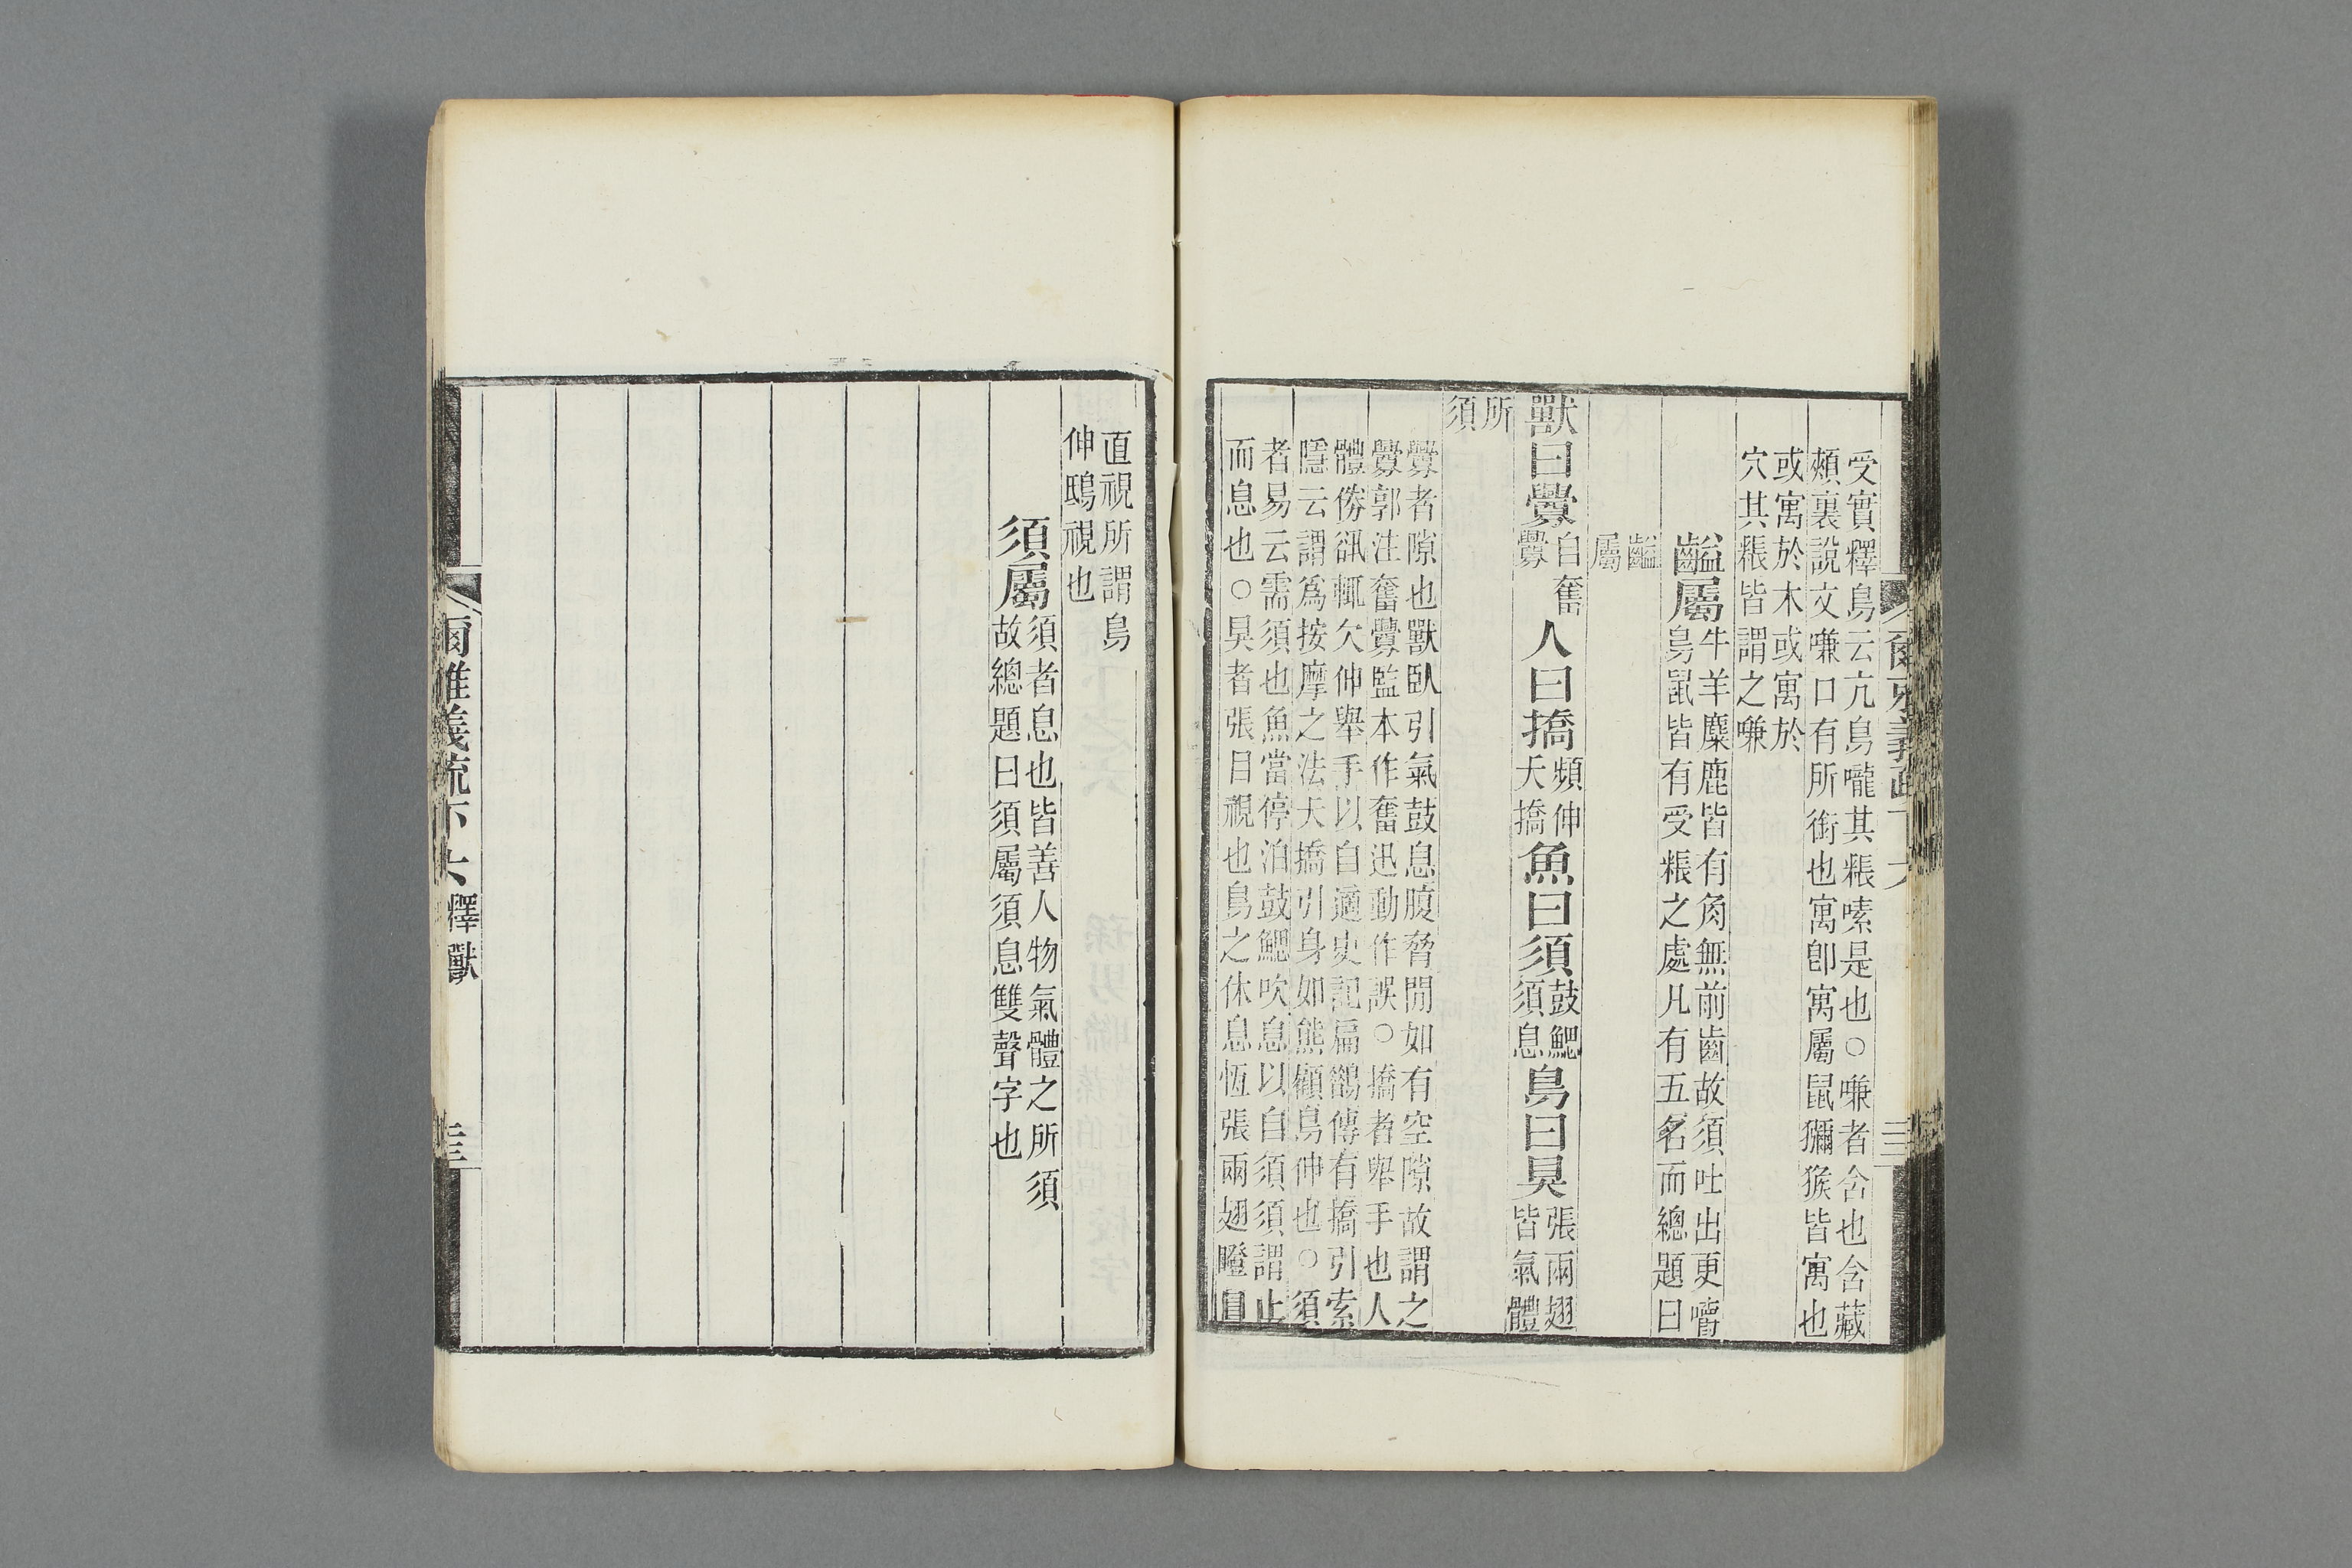 受實釋鳥云亢鳥嚨其粻嗉是也○嗛者含也含藏
頰裏說文嗛口有所銜也寓卽寓屬鼠獼猴皆寓也
或寓於木或寓於
穴其粻皆謂之嗛
齸屬牛羊麋鹿皆有角無前齒故須吐出更嚼
鳥鼠皆有受粻之處凡有五名而總題曰
齸
屬
獸曰釁自奮
釁人曰撟頻伸
夭撟魚曰須鼓鰓
須息鳥曰狊張兩翅
皆氣體
所
須
釁者隙也獸臥引氣鼓息腹脅閒如有空隙故謂之
釁郭注奮釁監本作奮迅動作誤○撟者舉手也人
體㑃㕁輒欠伸舉手以自適史記扁鵲傳有撟引索
隱云謂爲按摩之法夭撟引身如熊顧鳥伸也○須
者易云需須也魚當停泊鼓鰓吹息以自須須謂止
而息也○狊者張目視也鳥之休息恆張兩翅瞪目
直視所謂鳥
伸鴟視也
須屬須者息也皆善人物氣體之所須
故總題曰須屬須息雙聲字也
爾雅義疏下六 釋獸